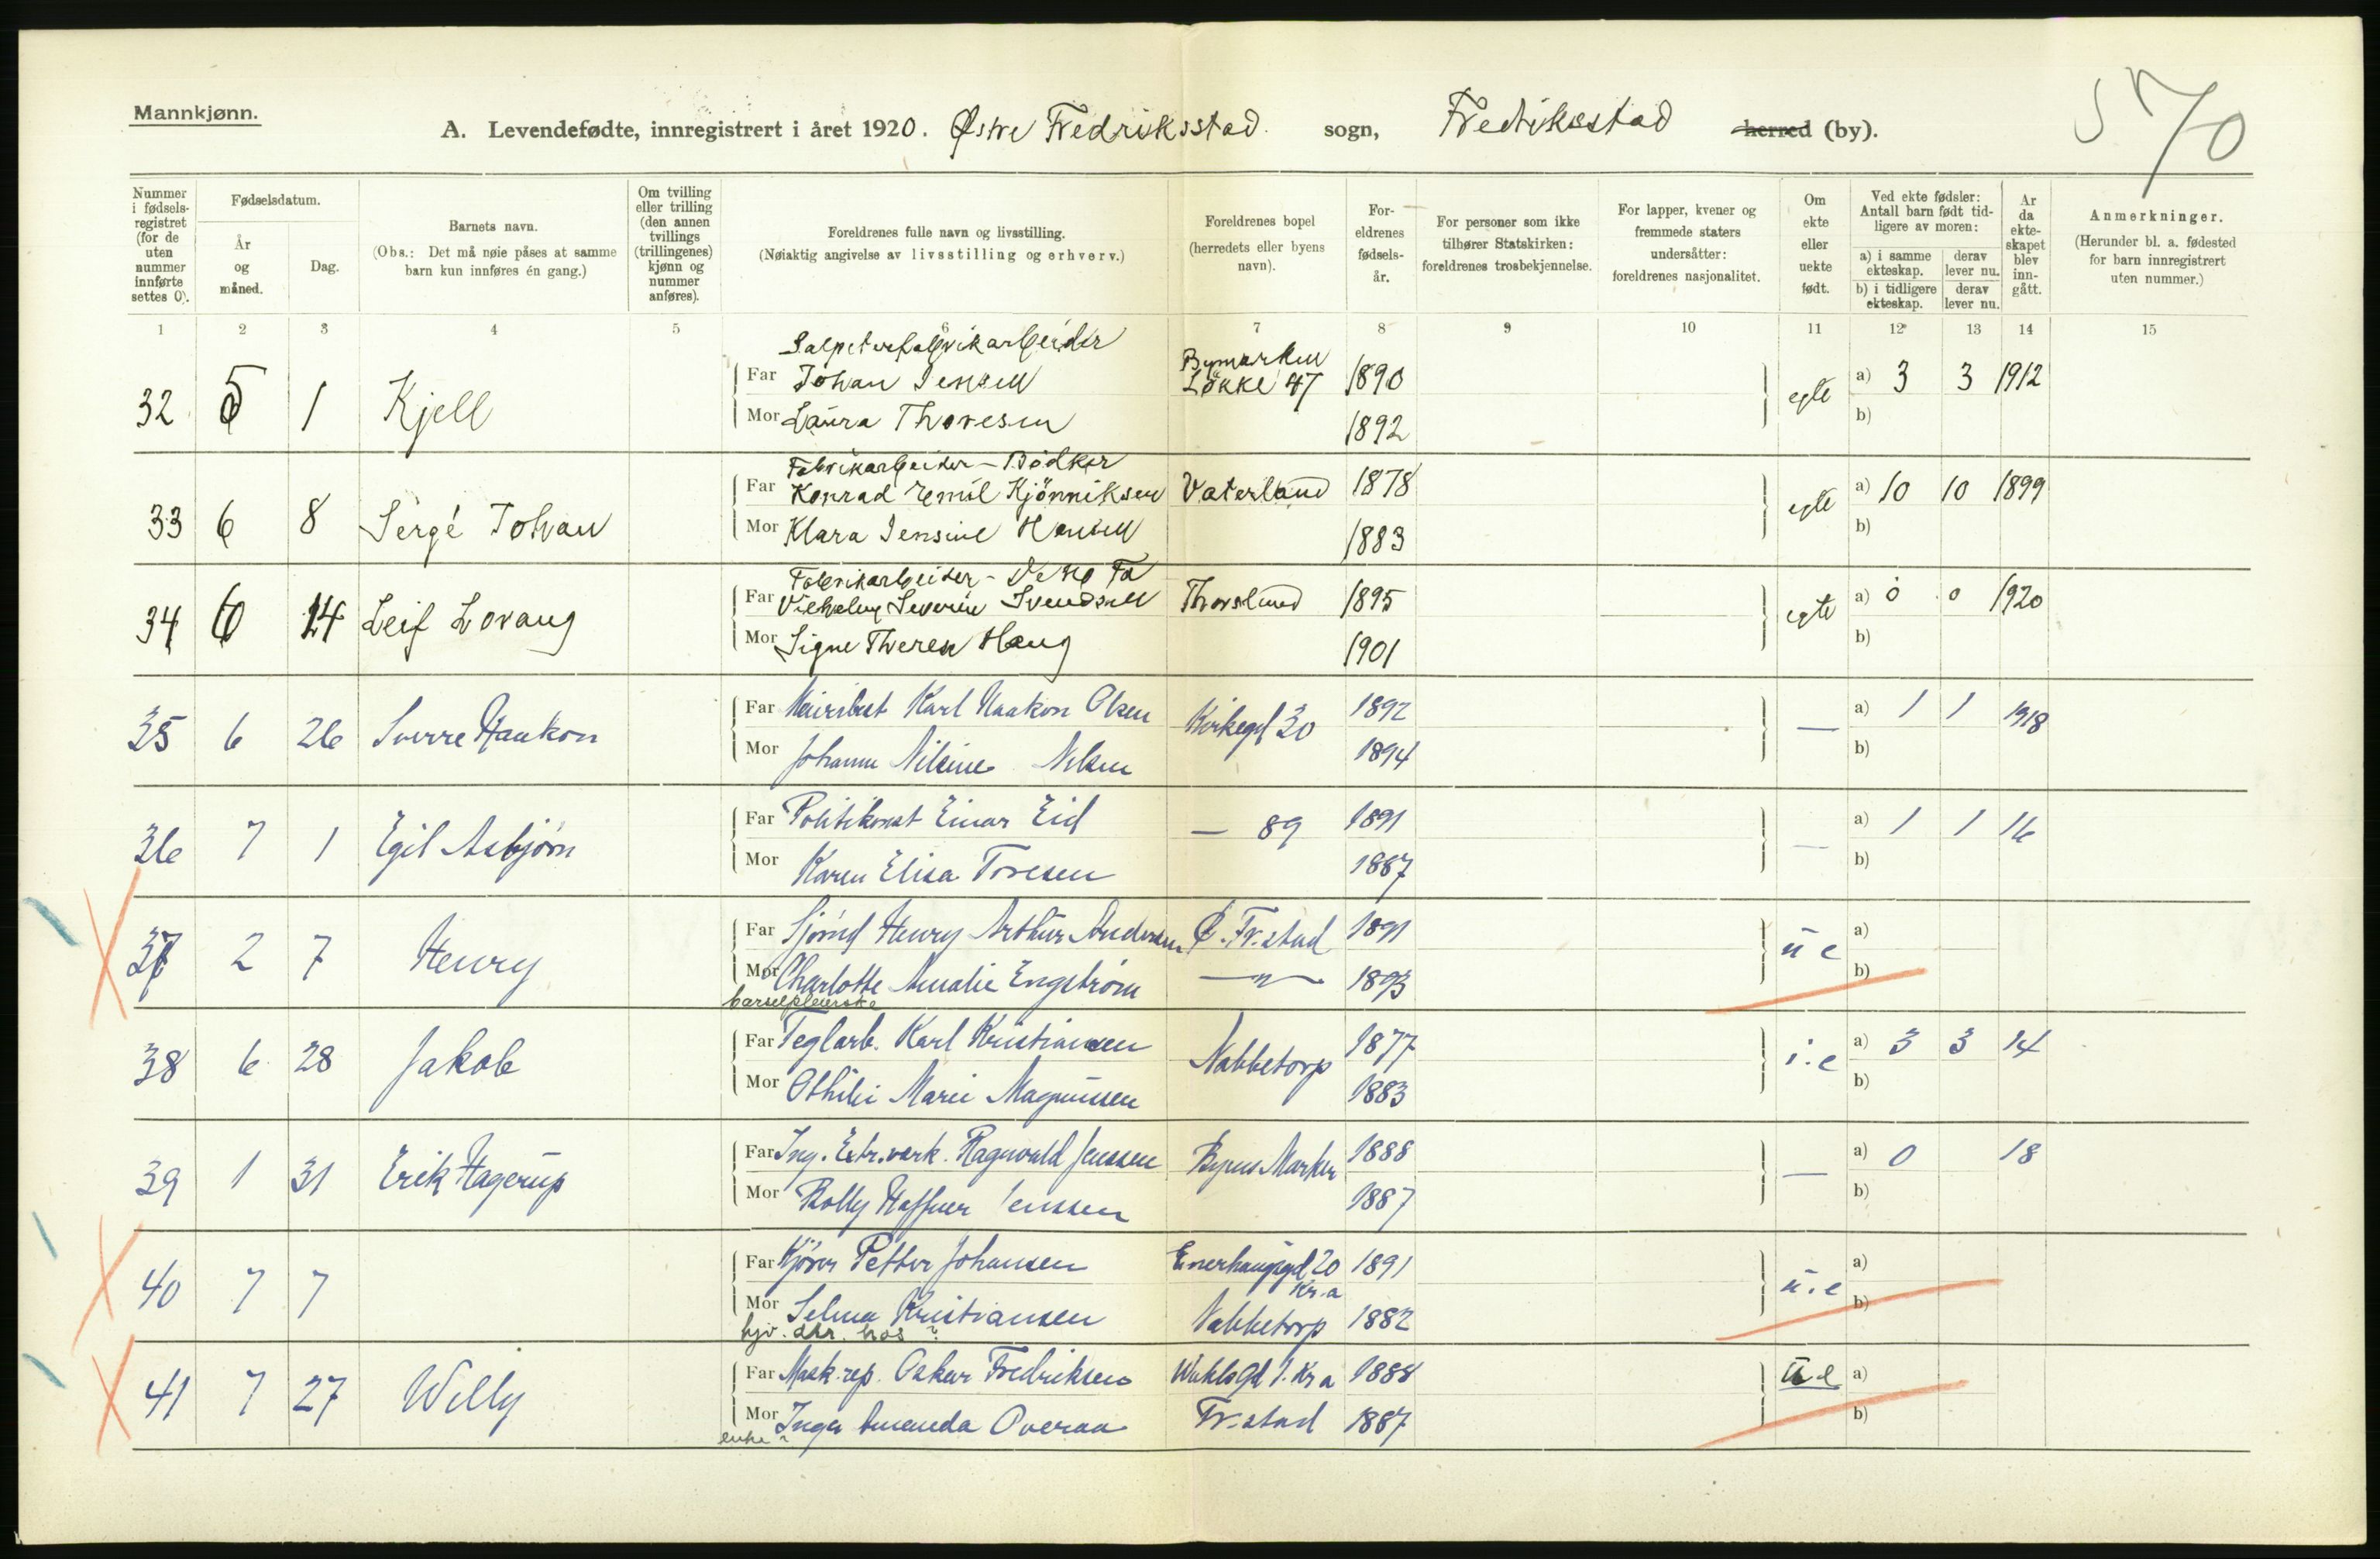 Mannkjønn.
A. Levendefødte, innregistrert i året 1920. Østre Fredriksstad sogn, Fredriksstad herred (by).
570
Nummer i fødsels-registret (for de uten nummer innførte settes 0).
Fødselsdatum.
År og måned.
Dag.
Barnets navn.
(Obs.: Det må nøie påses at samme barn kun innføres én gang.)
Om tvilling eller trilling (den annen tvillings (trillingenes) kjønn og nummer anføres).
Foreldrenes fulle navn og livsstilling.
(Nøiaktig angivelse av livsstilling og erhverv.)
Foreldrenes bopel (herredets eller byens navn).
For-eldrenes fødsels-år.
For personer som ikke tilhører Statskirken: foreldrenes trosbekjennelse.
For lapper, kvener og fremmede staters undersåtter: foreldrenes nasjonalitet.
Om ekte eller uekte født.
Ved ekte fødsler: Antall barn født tid-ligere av moren:
a) i samme ekteskap.
derav lever nu.
b) i tidligere ekteskap.
derav lever nu.
År da ekte-skapet blev inn-gått.
Anmerkninger.
(Herunder bl. a. fødested for barn innregistrert uten nummer.)
1 2 3 4 5 6 7 8 9 10 11 12 13 14 15
Salpeterfabrikarbeider
32 5 1 Kjell Far Johan Jensen Bymarken Løkke 47 1890 egte a) 3 3 1912
Mor Laura Thoresen 1892 b)
Fabrikarbeider - Bødker
33 6 8 Sergé Johan Far Konrad Emil Kjönniksen Vaterland 1878 egte a) 10 10 1899
Mor Klara Jensine Hansen 1883 b)
Fabrikarbeider -
34 6 14 Leif Lovang Far Vilhelm Severin Svendsen Thorslund 1895 egte a) 0 0 1920
Mor Signe Therese Haug 1901 b)
35 6 26 Sverre Haakon Far Karl Haakon Olsen Kirkegd 30 1892 — a) 1 1 1918
Mor Johanne Nilsine Nilsen 1894 b)
36 7 1 Egil Asbjørn Far Politikonst Einar Eid — 89 1891 — a) 1 1 16
Mor Karen Elisa Toresen 1887 b)
37 2 7 Henry Far Sjømd Henry Arthur Andersen Ø. Fr.stad 1891 u e a)
Mor Charlotte Amalie Engstrøm —"— 1893 b)
barselpleierske
38 6 28 Jakob Far Teglarb. Karl Kristiansen Nabbetorp 1877 i.e a) 3 3 14
Mor Othilie Marie Magnussen 1883 b)
39 1 31 Erik Hagerup Far Ing. Ragnvald Jenssen Byens Marker 1888 — a) 0 18
Mor Bolly Haffner Jenssen 1887 b)
40 7 7 Far Kjører Petter Johansen Enerhauggd 20 Kr.a 1891 u.e a)
Mor Selma Kristiansen Nabbetorp 1882 b)
hjv. dtr. hos ?
41 7 27 Willy Far Mask.rep. Oskar Fredriksen 1. Kr a 1888 u e a)
Mor Inga Amanda Overaa Fr.stad 1887 b)
enke ?